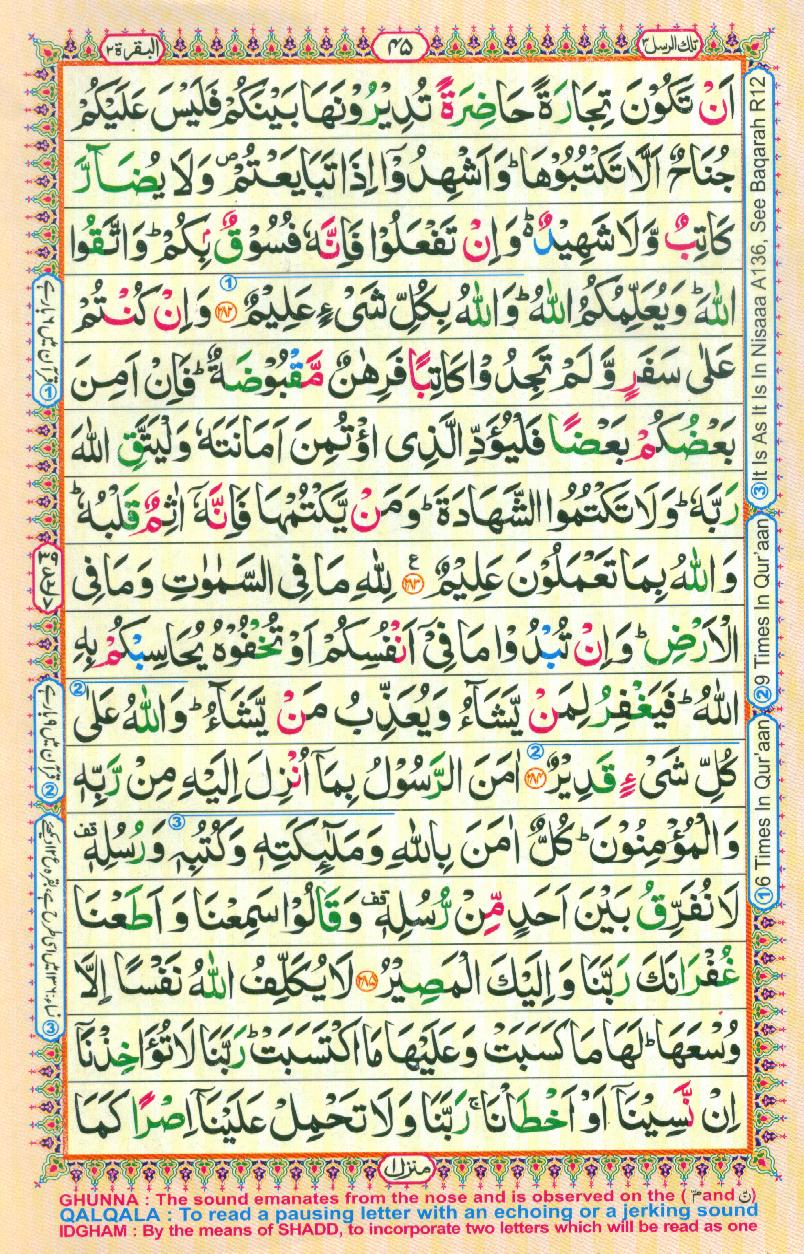 تلك الرسل ٣
٤٥
البقرة ٢
اَنْ تَكُوْنَ تِجَارَةً حَاضِرَةً تُدِيْرُوْنَهَا بَيْنَكُمْ فَلَيْسَ عَلَيْكُمْ
جُنَاحٌ اَلَّا تَكْتُبُوْهَا ؕ وَاَشْهِدُوْۤا اِذَا تَبَايَعْتُمْ ۪ وَلَا يُضَآرَّ
كَاتِبٌ وَّلَا شَهِيْدٌ ؕ۬ وَاِنْ تَفْعَلُوْا فَاِنَّهٗ فُسُوْقٌۢ بِكُمْ ؕ وَاتَّقُوا
اللّٰهَ ؕ وَيُعَلِّمُكُمُ اللّٰهُ ؕ وَاللّٰهُ بِكُلِّ شَیْءٍ عَلِيْمٌ ①﴿۲۸۲﴾ وَاِنْ كُنْتُمْ
عَلٰی سَفَرٍ وَّلَمْ تَجِدُوْا كَاتِبًا فَرِهٰنٌ مَّقْبُوْضَةٌ ؕ فَاِنْ اَمِنَ
بَعْضُكُمْ بَعْضًا فَلْيُؤَدِّ الَّذِی اؤْتُمِنَ اَمَانَتَهٗ وَلْيَتَّقِ اللّٰهَ
رَبَّهٗ ؕ وَلَا تَكْتُمُوا الشَّهَادَةَ ؕ وَمَنْ يَّكْتُمْهَا فَاِنَّهٗۤ اٰثِمٌ قَلْبُهٗ ؕ
وَاللّٰهُ بِمَا تَعْمَلُوْنَ عَلِيْمٌ ﴿۲۸۳﴾ ع لِلّٰهِ مَا فِی السَّمٰوٰتِ وَمَا فِی
الْاَرْضِ ؕ وَاِنْ تُبْدُوْا مَا فِیْۤ اَنْفُسِكُمْ اَوْ تُخْفُوْهُ يُحَاسِبْكُمْ بِهِ
اللّٰهُ ؕ فَيَغْفِرُ لِمَنْ يَّشَآءُ وَيُعَذِّبُ مَنْ يَّشَآءُ ؕ وَاللّٰهُ عَلٰی ②
كُلِّ شَیْءٍ قَدِيْرٌ ②﴿۲۸۴﴾ اٰمَنَ الرَّسُوْلُ بِمَاۤ اُنْزِلَ اِلَيْهِ مِنْ رَّبِّهٖ
وَالْمُؤْمِنُوْنَ ؕ كُلٌّ اٰمَنَ بِاللّٰهِ وَمَلٰٓئِكَتِهٖ ③ وَكُتُبِهٖ وَرُسُلِهٖ قف
لَا نُفَرِّقُ بَيْنَ اَحَدٍ مِّنْ رُّسُلِهٖ قف وَقَالُوْا سَمِعْنَا وَاَطَعْنَا
غُفْرَانَكَ رَبَّنَا وَاِلَيْكَ الْمَصِيْرُ ﴿۲۸۵﴾ لَا يُكَلِّفُ اللّٰهُ نَفْسًا اِلَّا
وُسْعَهَا ؕ لَهَا مَا كَسَبَتْ وَعَلَيْهَا مَا اكْتَسَبَتْ ؕ رَبَّنَا لَا تُؤَاخِذْنَاۤ
اِنْ نَّسِيْنَاۤ اَوْ اَخْطَاْنَا ۚ رَبَّنَا وَلَا تَحْمِلْ عَلَيْنَاۤ اِصْرًا كَمَا
منزل ١
① 6 Times In Qur'aan
② 9 Times In Qur'aan
③ It Is As It Is In Nisaaa A136, See Baqarah R12
① قرآن میں ٦ بار ہے
② قرآن میں ٩ بار ہے
③
GHUNNA : The sound emanates from the nose and is observed on the ( مّ and نّ )
QALQALA : To read a pausing letter with an echoing or a jerking sound
IDGHAM : By the means of SHADD, to incorporate two letters which will be read as one